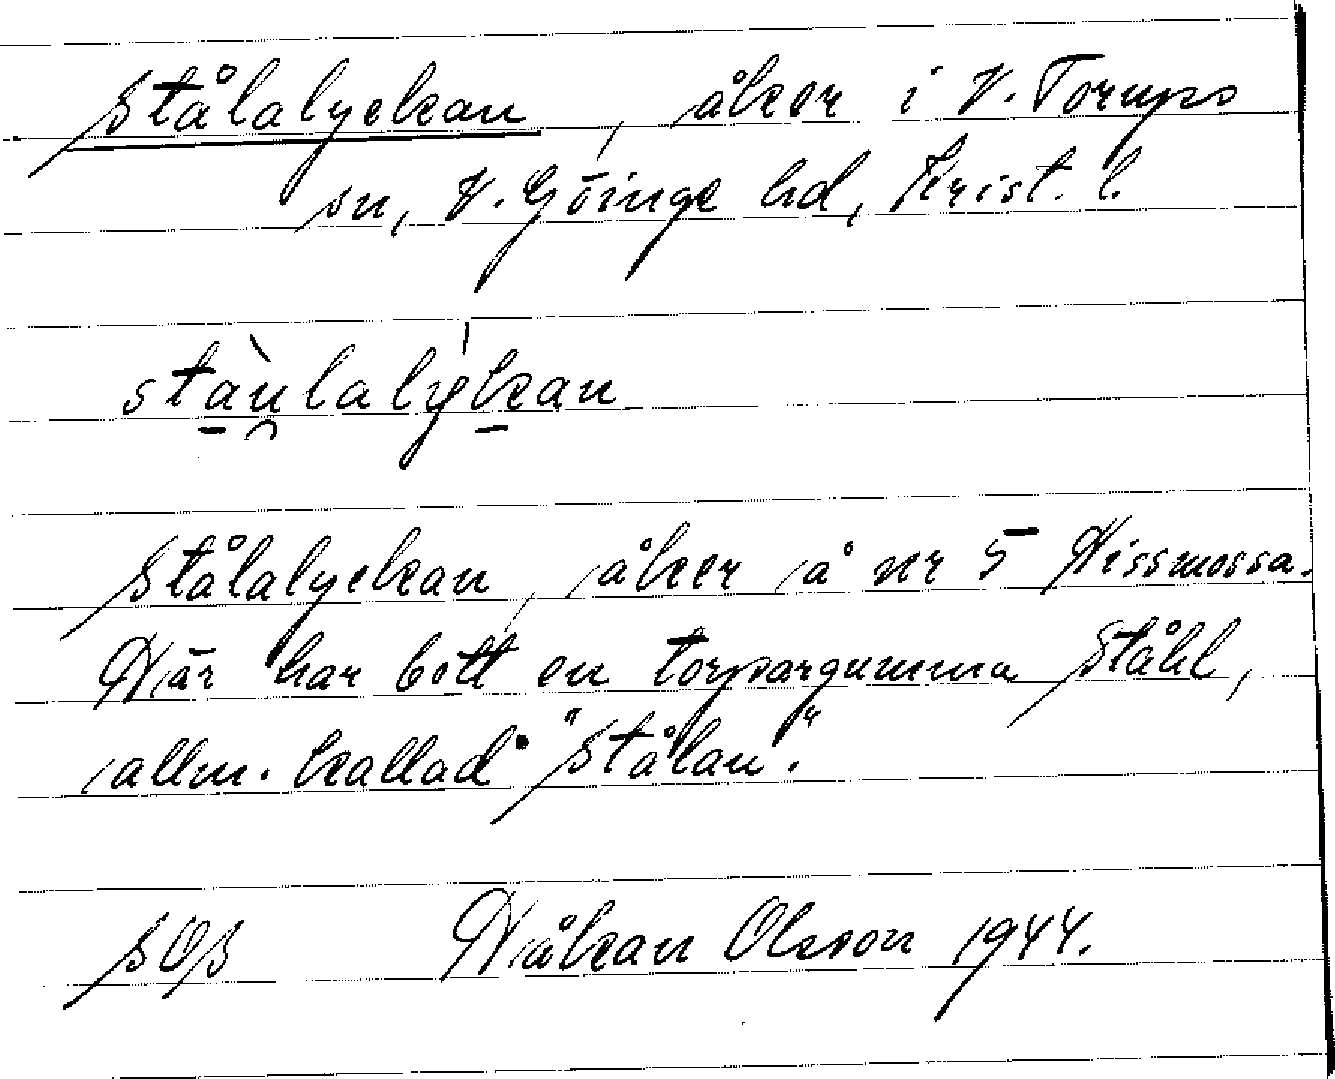 Stålalyckan, åker i V. Torups
sn, V. Göinge hd, Krist. l.
stàu̯lalýkan
Stålalyckan, åker å nr 5 Hissmossa.
Här har bott en torpargumma Ståhl,
allm. kallad "Stålan".
Håkan Olsson 1944.